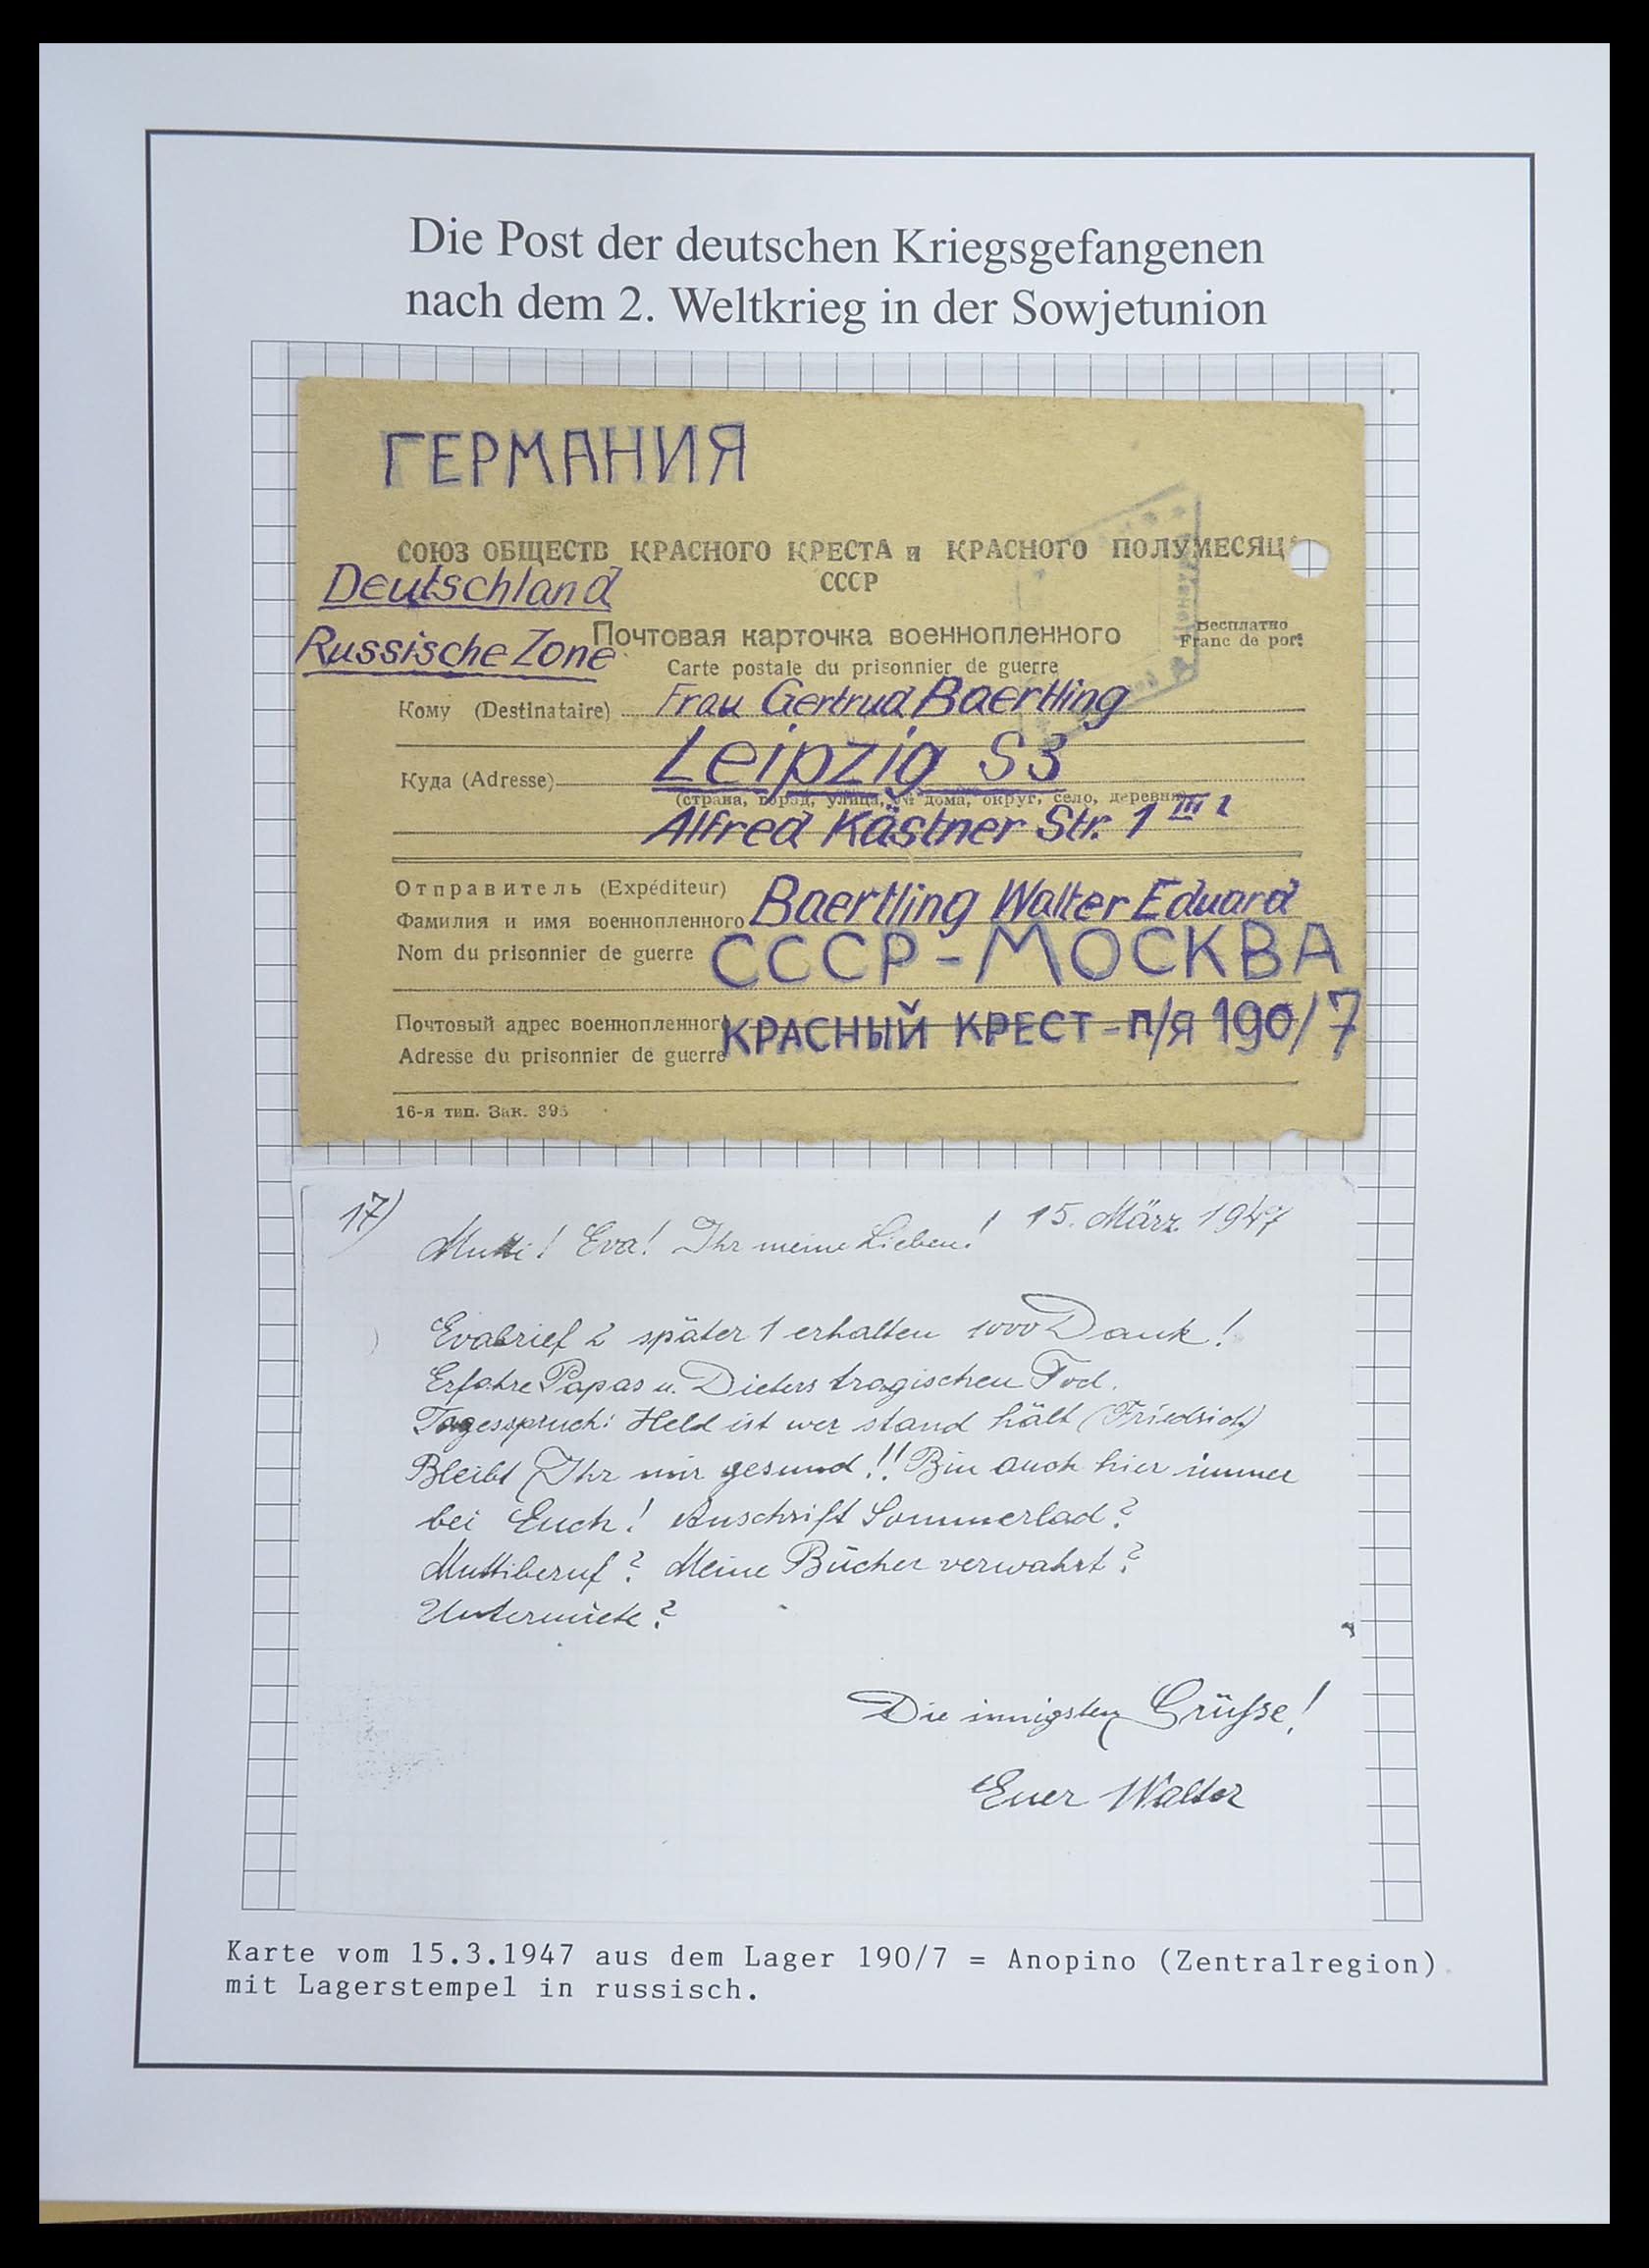 Die Post der deutschen Kriegsgefangenen
nach dem 2. Weltkrieg in der Sowjetunion
ГЕРМАНИЯ
СОЮЗ ОБЩЕСТВ КРАСНОГО КРЕСТА и КРАСНОГО ПОЛУМЕСЯЦ
СССР
Deutschland
Russische Zone
Почтовая карточка военнопленного
Carte postale du prisonnier de guerre
Бесплатно
Franc de port
Кому (Destinataire) Frau Gertrud Baertling
Куда (Adresse) Leipzig S3
(страна, город, улица, № дома, округ, село, деревня)
Alfred Kästner Str. 1 III
Отправитель (Expéditeur)
Фамилия и имя военнопленного Baertling Walter Eduard
Nom du prisonnier de guerre СССР-МОСКВА
Почтовый адрес военнопленного КРАСНЫЙ КРЕСТ-п/я 190/7
Adresse du prisonnier de guerre
16-я тип. Зак. 395
17) 15. März 1947
Mutti! Eva! Ihr meine Lieben!
Evabrief 2 später 1 erhalten 1000 Dank!
Erfahre Papas u. Dieters tragischen Tod.
Tagesspruch: Held ist wer stand hält (Friedrich)
Bleibt Ihr mir gesund!! Bin auch hier immer
bei Euch! Anschrift Sommerlad?
Muttiberuf? Meine Bücher verwahrt?
Untermiete?
Die innigsten Grüße!
Euer Walter
Karte vom 15.3.1947 aus dem Lager 190/7 = Anopino (Zentralregion)
mit Lagerstempel in russisch.